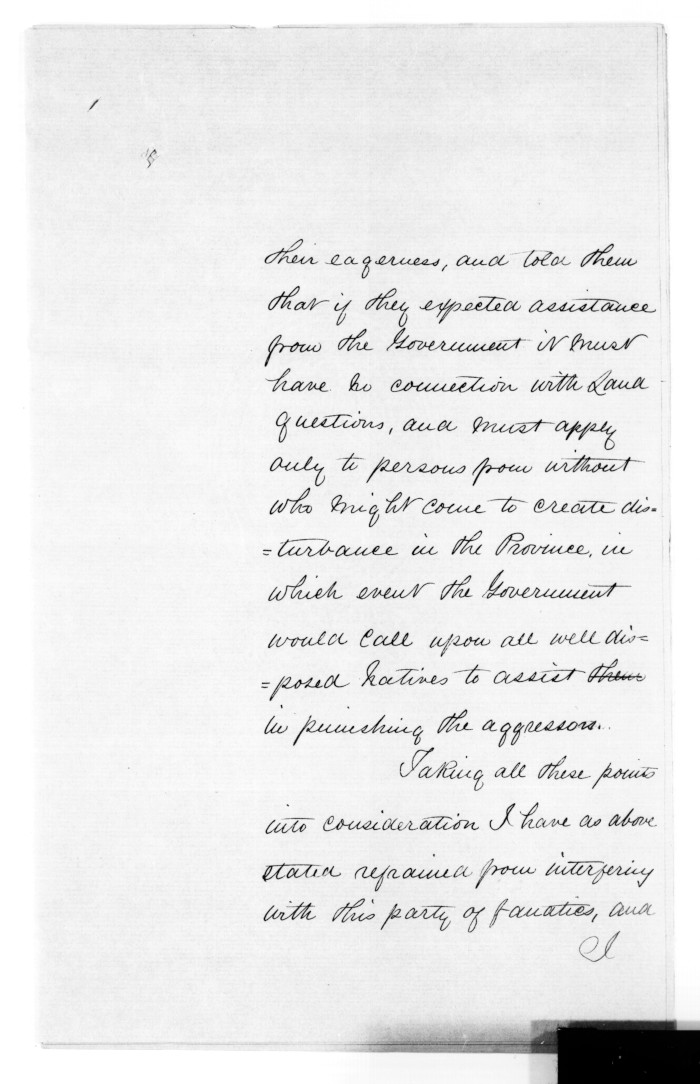 their eagerness, and told them
that if they expected assistance
from the Government it must
have no connection with Land
questions, and must apply
only to persons from without
who might come to create dis=
=turbance in the Province, in
which event the Government
would call upon all well dis=
=posed Natives to assist them
in punishing the aggressors.
Taking all these points
into consideration I have as above
stated refrained from interfering
with this party of fanatics, and
I